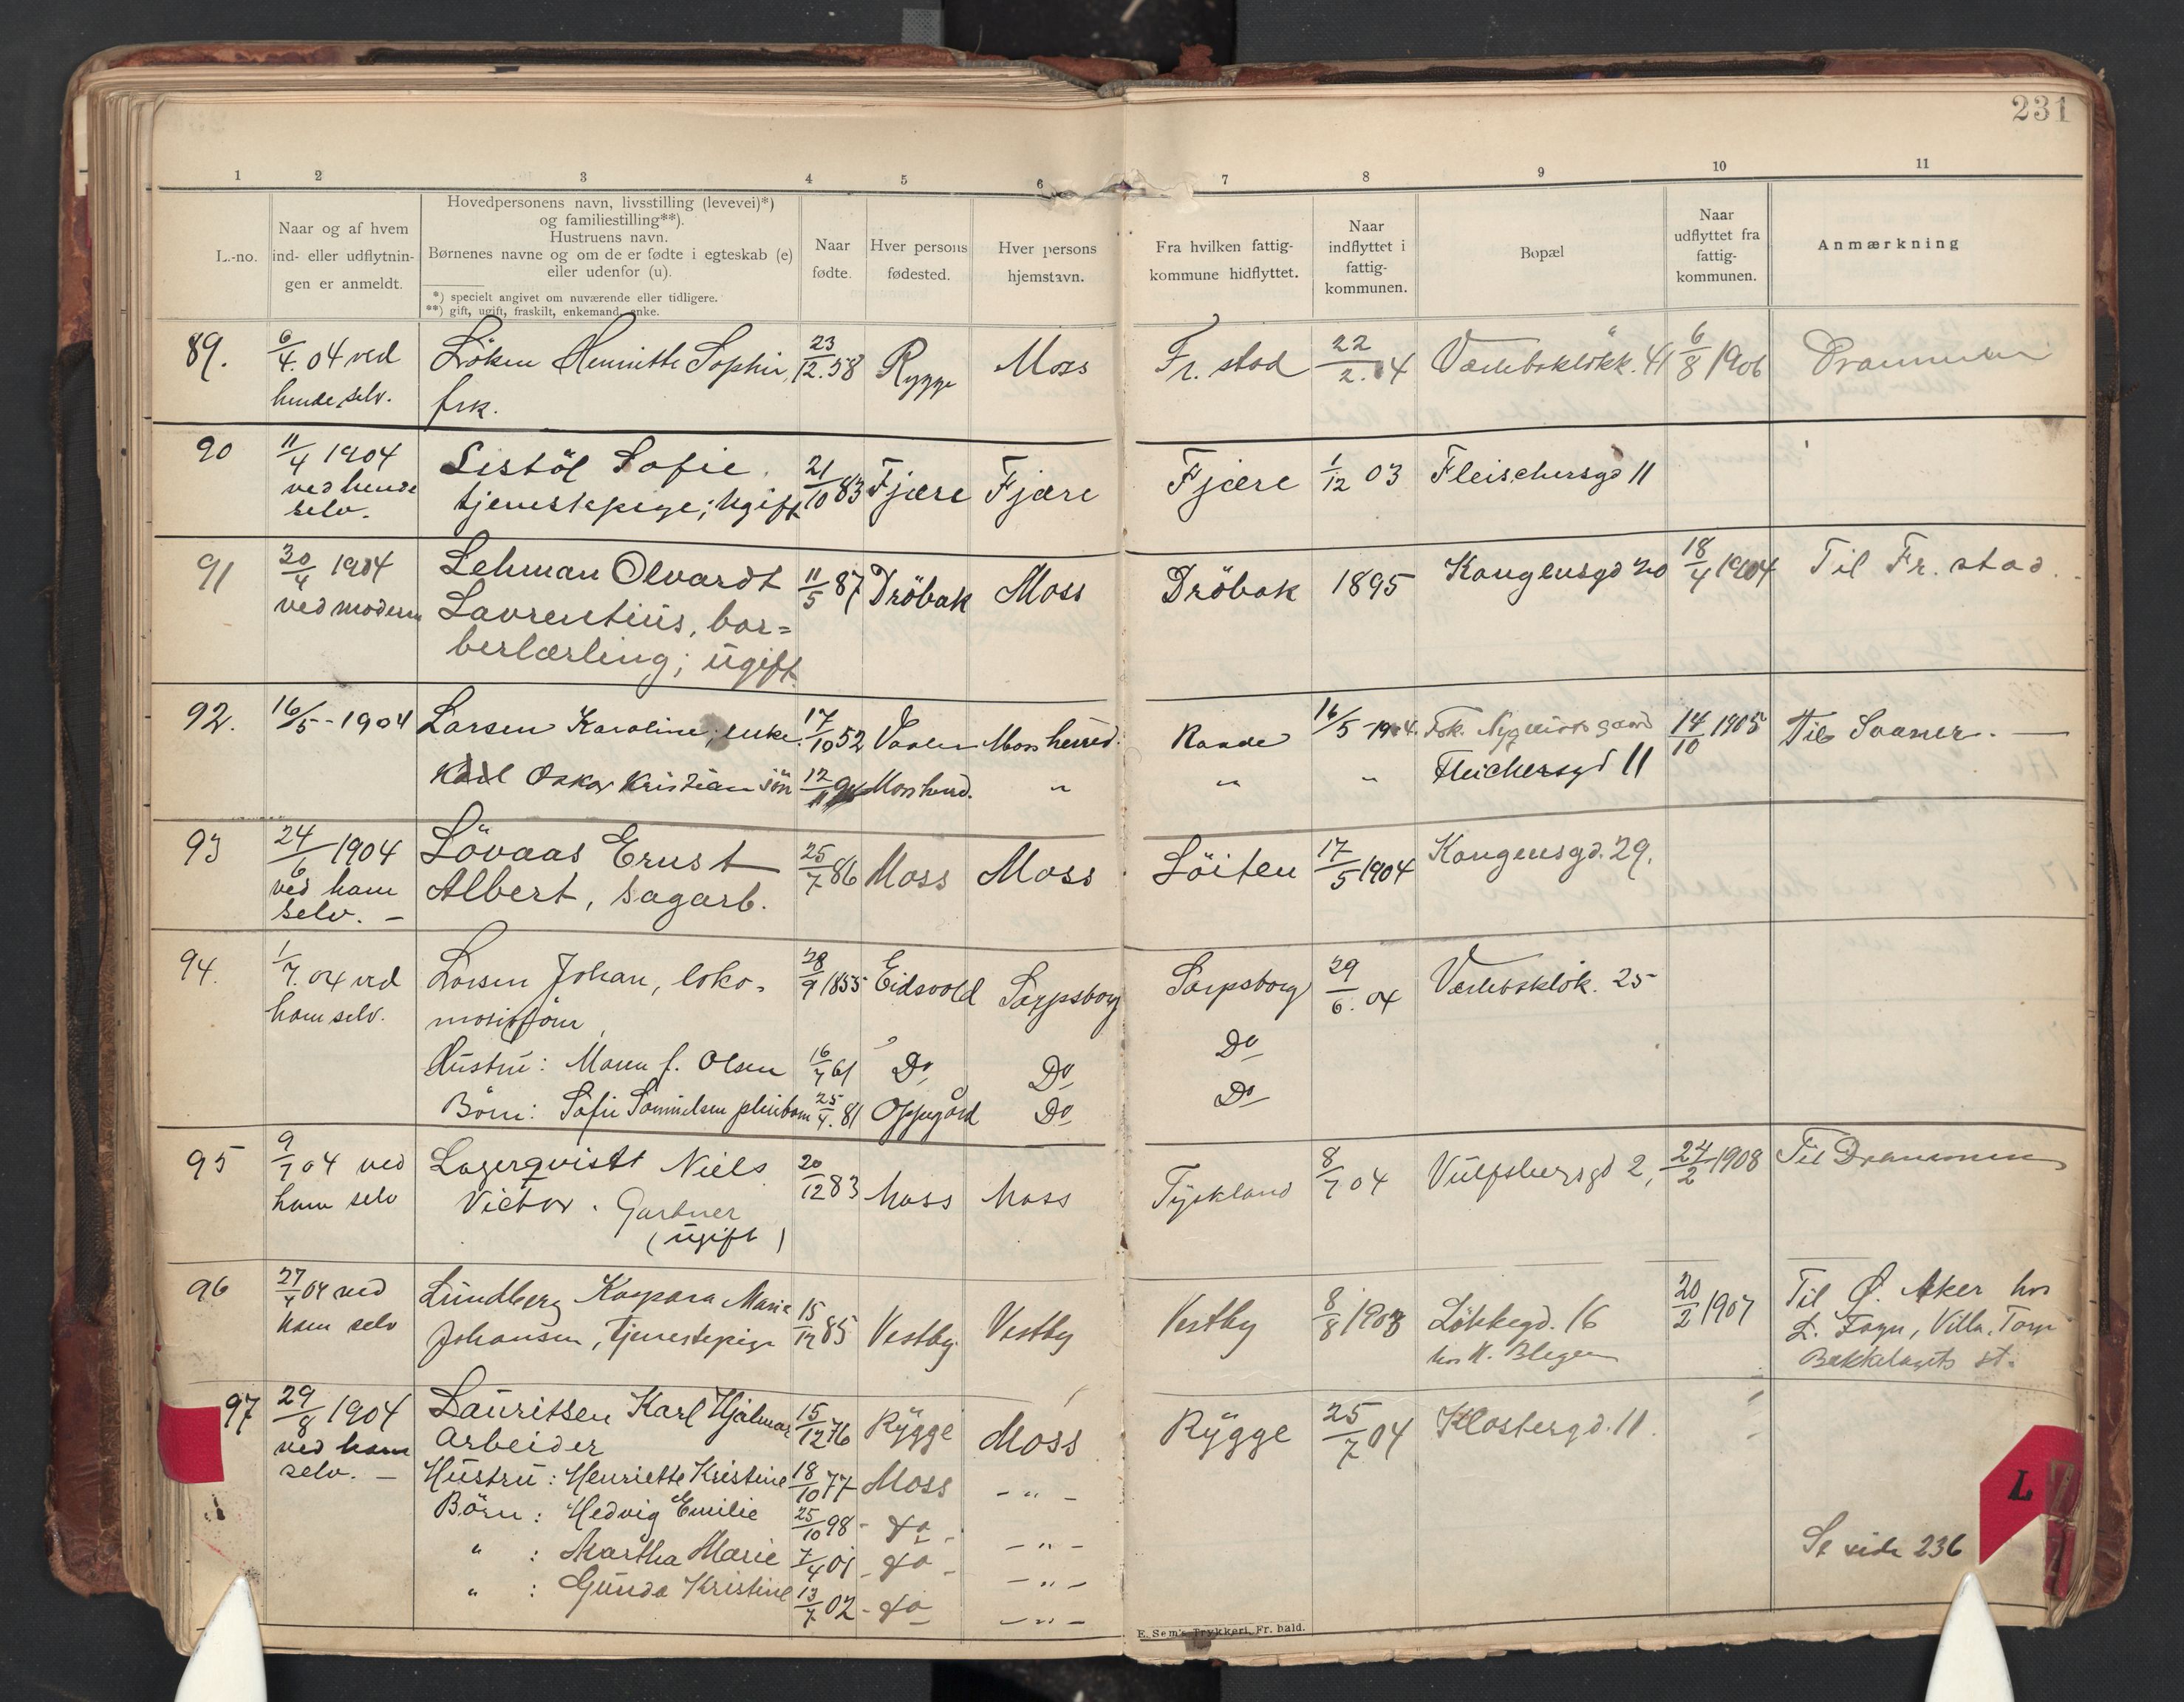 231
1 2 3 4 5 6 7 8 9 10 11
L.-no.
Naar og af hvem
ind- eller udflytnin-
gen er anmeldt.
Hovedpersonens navn, livsstilling (levevei)*)
og familiestilling**).
Hustruens navn.
Børnenes navne og om de er fødte i egteskab (e)
eller udenfor (u).
*) specielt angivet om nuværende eller tidligere.
**) gift, ugift, fraskilt, enkemand, enke.
Naar
fødte.
Hver persons
fødested.
Hver persons
hjemstavn.
Fra hvilken fattig-
kommune hidflyttet.
Naar
indflyttet i
fattig-
kommunen.
Bopæl
Naar
udflyttet fra
fattig-
kommunen.
Anmærkning
89. 6/4. 04 ved Löken Henriette Sophie, 23/12.58 Rygge Moss Fr. stad 22/2.04 Værlebsklökk. 41 6/8 1906 Drammen
hende selv. frk.
90 11/4 1904 Listöl Sofie. 21/10 83 Fjære Fjære Fjære 1/12 03 Fleischersgd 11
ved hende tjenestepige; Ugift
selv.
91 30/4 1904 Lehman Olvardt 11/5 87 Dröbak Moss Dröbak 1895 Kongensgd 20 18/4 1904 Til Fr. stad.
ved modern Laurentius, bar=
berlærling; ugift.
92. 16/5-1904 Larsen Karoline, enke. 17/10 52 Vaaler Moss herred. Raade 16/5-1904. Fok. Nygaard 14/10 1905 Til Saaner. —
Karl Oskar Kristian sön 12/11 Moss herred. " " " Fleichersgd 11
93 24/6 1904 Lövaas Ernst 25/7 86 Moss Moss Löiten 17/5 1904 Kongensgd. 29.
ved ham Albert, sagarb.
selv. –
94. 1/7. 04 ved Larsen Johan, loko- 28/9 1855 Eidsvold Sarpsborg Sarpsborg 29/6. 04 Værlebsklök. 25
ham selv.
Hustru: Maren f. Olsen 16/7 61 Do Do Do
Börn: Sofie Samuelsen pleiebarn 25/4. 81 Oppegård Do Do
95 9/7 04 ved Lagerqvist Niels 20/12 83 Moss Moss Tyskland 8/7 04 Vulfsbergsgd 2, 24/2 1908 Til Drammen
ham selv Victor. Gartner
(ugift)
96 04 ved Lundberg Kaspara Marie 15/12 85 Vestby Vestby Vestby 8/8 1903 Lökkegd. 16 20/2 1907 Til Ø. Aker hos
ham selv Johansen, tjenestepige hos H. Blegen L. Fagn, Villa. Torp
Bækkelagets st.
97 29/8 1904 Lauritsen Karl Hjalmar 15/12 76 Rygge Moss Rygge 25/7 04 Klostergd. 11.
ved ham Arbeider
selv. – Hustru: Henriette Kristine 18/10 77 Moss – " –
Börn: Hedvig Emilie 25/10 98 - do - – " –
" : Martha Marie 7/4 01 - do - – " –
" : Gunda Kristine 13/7 02 - do – " –
Se side 236
L
E. Sem's Trykkeri, Fr. hald.